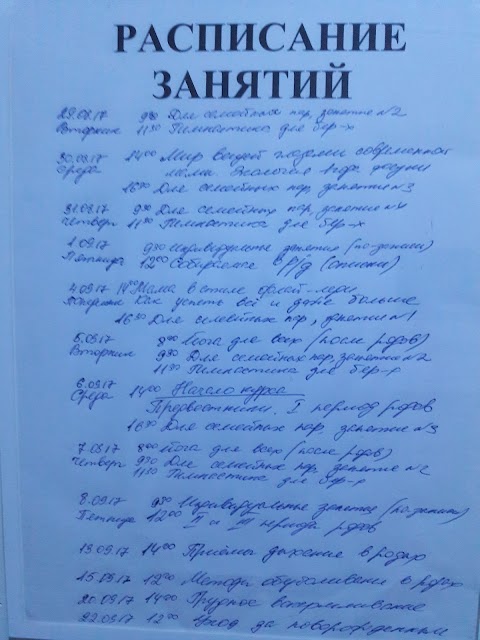 РАСПИСАНИЕ
ЗАНЯТИЙ
29.08.17 9³⁰ Для семейных пар, занятие №2
Вторник 11³⁰ Гимнастика для бер-х
30.08.17 14⁰⁰ Мир вещей глазами современной
Среда мамы. Экология
16³⁰ Для семейных пар, занятие №3
31.08.17 9³⁰ Для семейных пар, занятие №4
Четверг 11³⁰ Гимнастика для бер-х
1.09.17 9³⁰ Индивидуальные занятия (по записи)
Пятница 12⁰⁰ Собираемся в р/д (списки)
4.09.17 14⁰⁰ Мама в стиле флай-леди
Как успеть всё и даже больше
16³⁰ Для семейных пар, занятие №1
5.09.17 8⁰⁰ Йога для всех (после родов)
Вторник 9³⁰ Для семейных пар, занятие №2
11³⁰ Гимнастика для бер-х
6.09.17 14⁰⁰ Начало курса
Среда Предвестники. I период родов
16³⁰ Для семейных пар, занятие №3
7.09.17 8⁰⁰ Йога для всех (после родов)
Четверг 9³⁰ Для семейных пар, занятие
11³⁰ Гимнастика для бер-х
8.09.17 9³⁰ Индивидуальные занятия (по записи)
Пятница 12⁰⁰ II и III периоды родов
13.09.17 14⁰⁰ Приёмы дыхания в родах
15.09.17 12⁰⁰ Методы обезболивания в родах
20.09.17 14⁰⁰ Грудное вскармливание
22.09.17 12⁰⁰ Уход за новорожденным